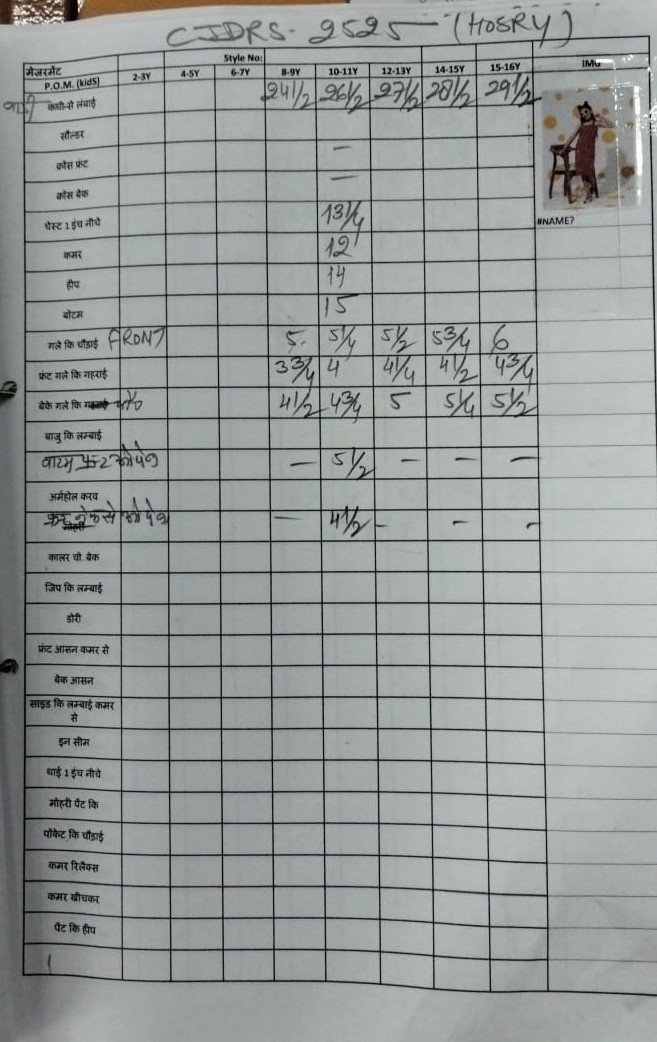 CJDRS- 2525 - (HOSRY)
Style No:
मेजरमेंट
P.O.M. (kidS) 2-3Y 4-5Y 6-7Y 8-9Y 10-11Y 12-13Y 14-15Y 15-16Y IMG
कंधी-से लंबाई 24 1/2 26 1/2 27 1/2 28 1/2 29 1/2
सौल्डर
क्रोस फ्रंट —
क्रोस बेक —
#NAME?
चेस्ट 1 इंच नीचे 13 1/4
कमर 12
हीप 14
बोटम 15
गले कि चौड़ाई FRONT 5 5 1/4 5 1/2 5 3/4 6
फ्रंट गले कि गहराई 3 3/4 4 4 1/4 4 1/2 4 3/4
बेके गले कि 4 1/2 4 3/4 5 5 1/4 5 1/2
बाजु कि लम्बाई
— 5 1/2 — — —
अर्महोल करव
— 4 1/2 - - -
मोहरी
कालर चो. बेक
जिप कि लम्बाई
डोरी
फ्रंट आसन कमर से
बेक आसन
साइड कि लम्बाई कमर
से
इन सीम
थाई 1 इंच नीचे
मोहरी पेंट कि
पोकेट कि चौड़ाई
कमर रिलैक्स
कमर खीचकर
पेंट कि हीप